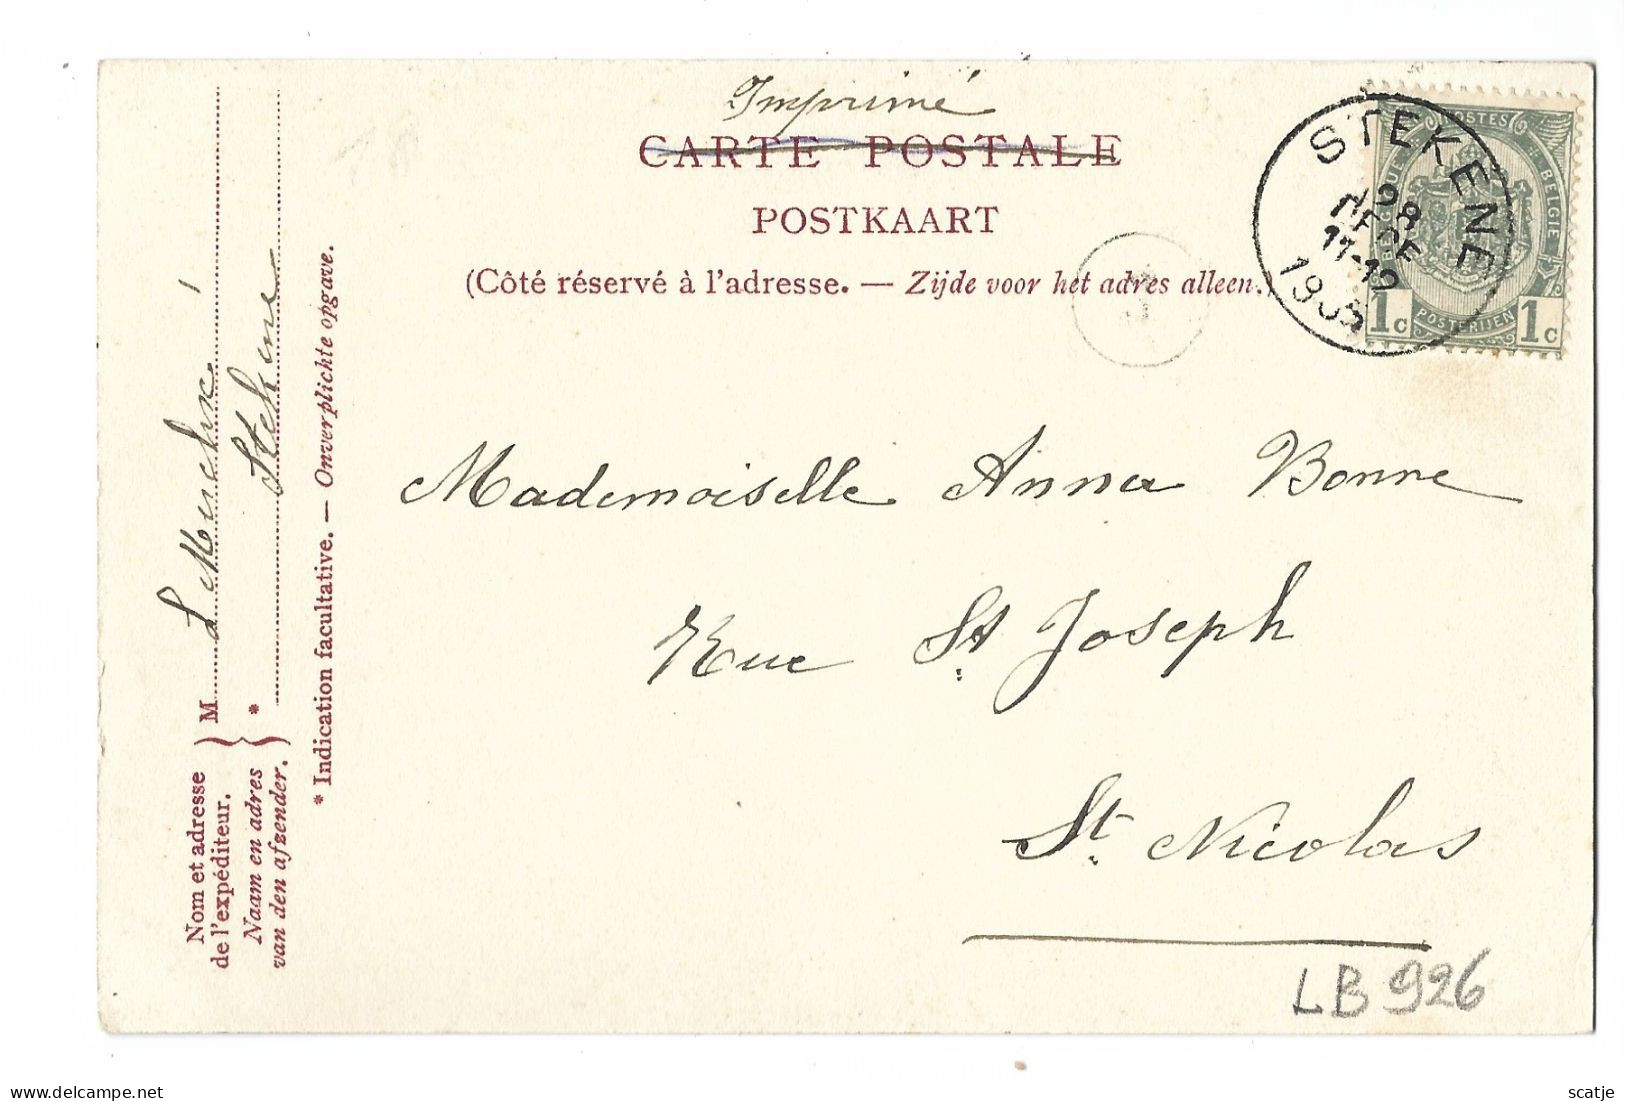 Imprimé
CARTE POSTALE
POSTKAART
(Côté réservé à l'adresse. — Zijde voor het adres alleen.)
STEKENE
11-12
POSTES
BELGIQUE
BELGIE
1c POSTERIJEN 1c
Mademoiselle Anna Bonne
Rue St. Joseph
St. Nicolas
LB 926
Nom et adresse
de l'expéditeur.
Naam en adres
van den afzender.
M
*
Stekene
* Indication facultative. — Onverplichte opgave.
scatje